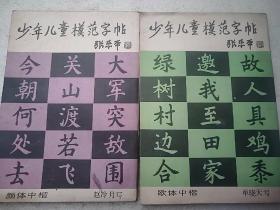 少年儿童模范字帖
大军突敌围
关山渡若飞
今朝何处去
颜体中楷
赵冷月写
少年儿童模范字帖
故人具鸡黍
邀我至田家
绿树村边合
欧体中楷
单晓天写